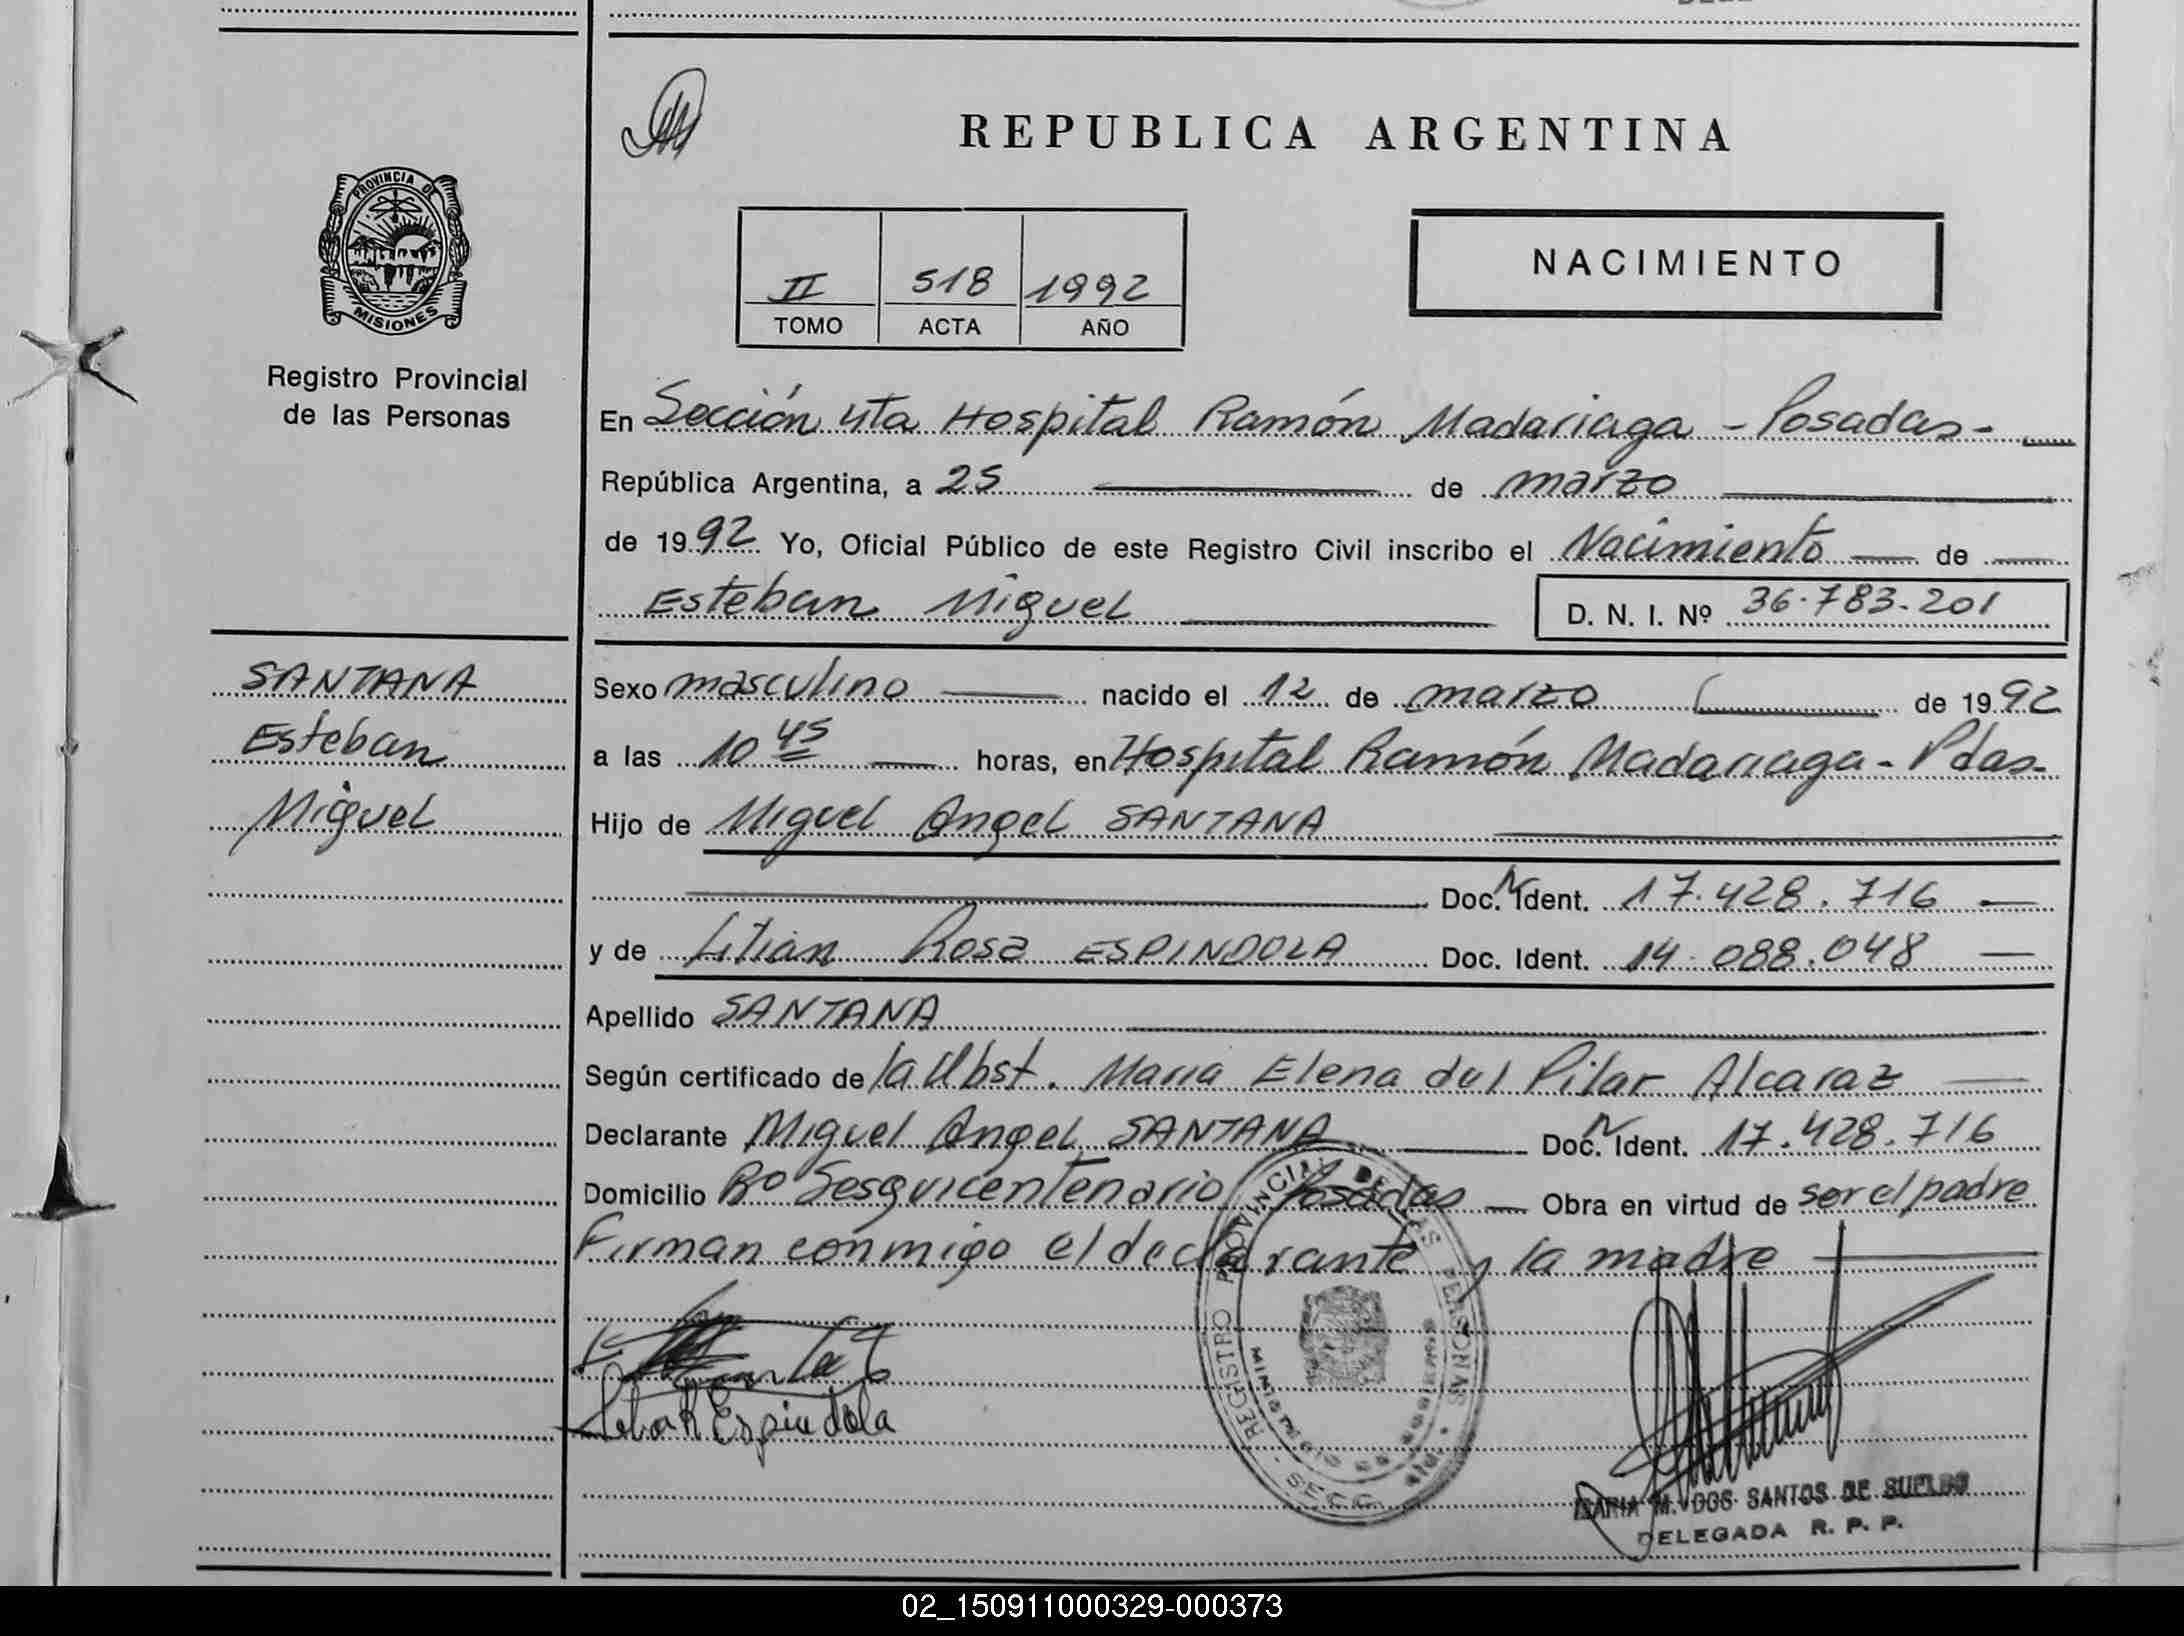 REPUBLICA ARGENTINA
PROVINCIA DE
MISIONES
Registro Provincial
de las Personas
II 518 1992
TOMO ACTA AÑO
NACIMIENTO
En Sección 4ta Hospital Ramón Madariaga - Posadas -
República Argentina, a 25 de marzo
de 1992 Yo, Oficial Público de este Registro Civil inscribo el Nacimiento de
Esteban Miguel D. N. I. Nº 36.783.201
SANTANA
Esteban
Miguel
Sexo masculino nacido el 12 de marzo de 1992
a las 10 45 horas, en Hospital Ramón Madariaga - Pdas -
Hijo de Miguel Angel SANTANA
Doc. N Ident. 17.428.716
y de Lilian Rosa ESPINDOLA Doc. Ident. 14.088.048
Apellido SANTANA
Según certificado de la Obst. Maria Elena del Pilar Alcaraz
Declarante Miguel Angel SANTANA Doc. N Ident. 17.428.716
Domicilio Bº Sesquicentenario Posadas Obra en virtud de ser el padre
Firman conmigo el declarante y la madre
REGISTRO PROVINCIAL DE LAS PERSONAS
Espindola
MARIA M. DOS SANTOS DE SUELDO
DELEGADA R. P. P.
02_150911000329-000373